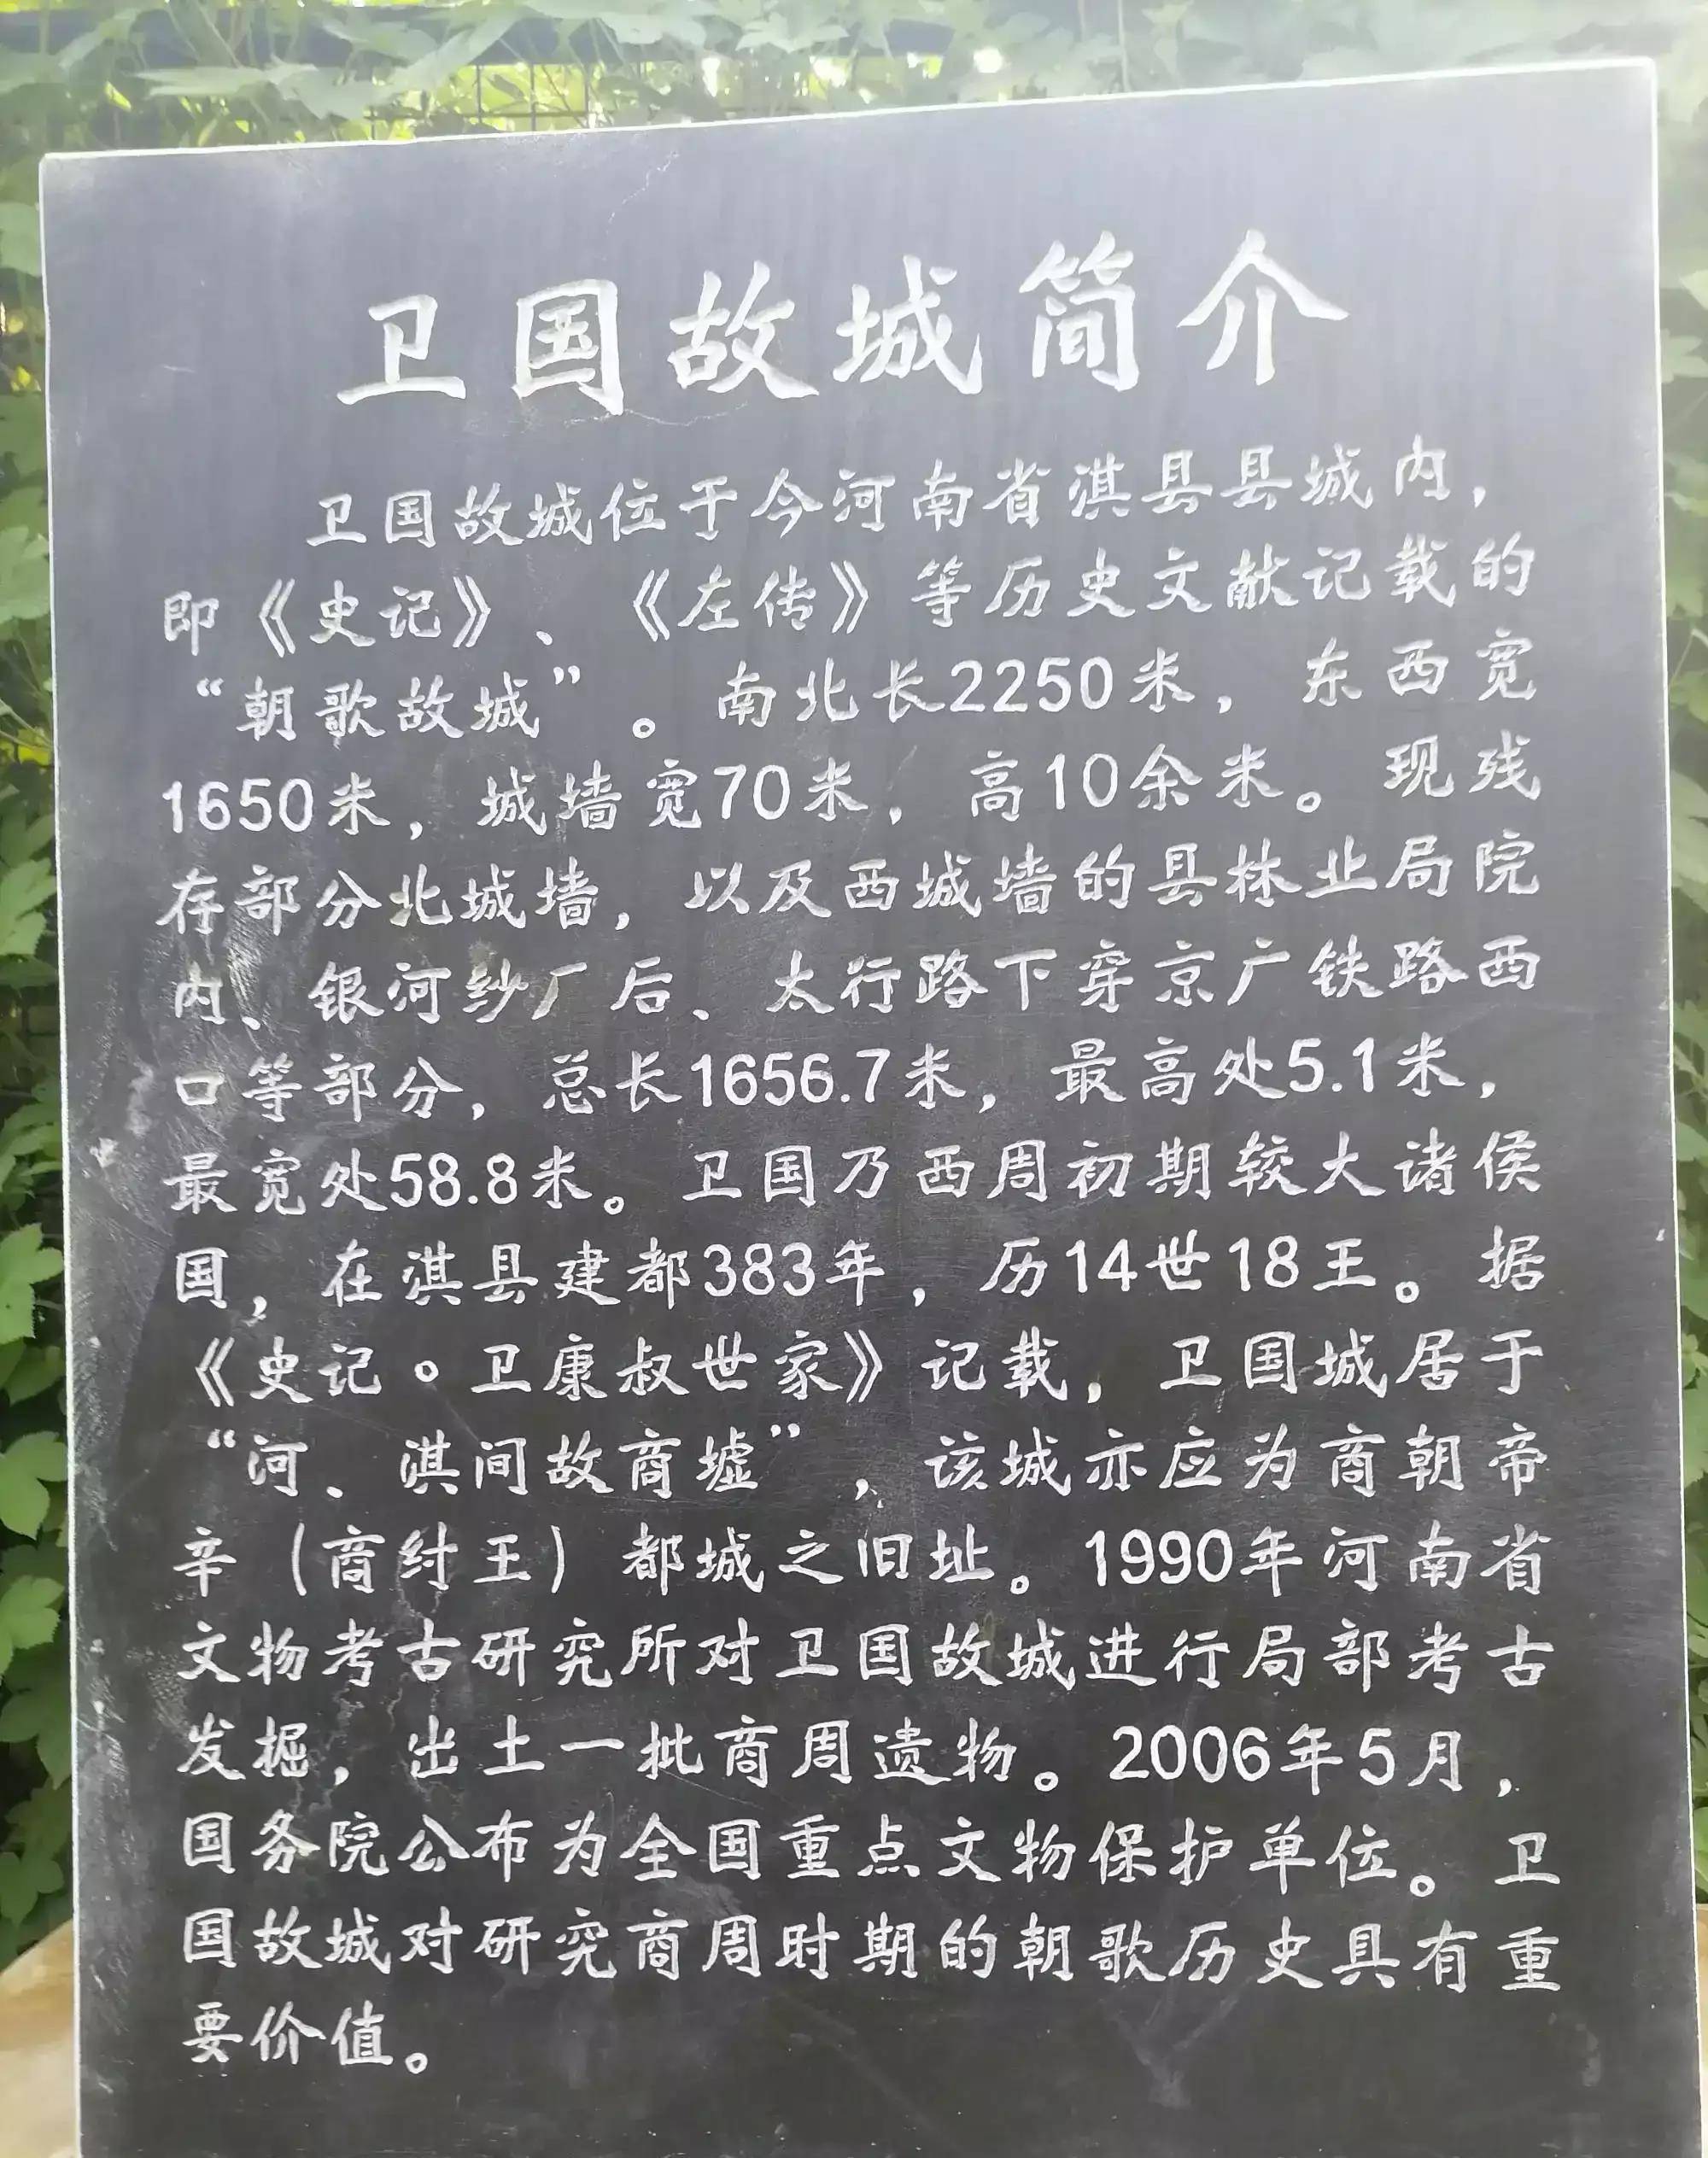 卫国故城简介
卫国故城位于今河南省淇县县城内，
即《史记》、《左传》等历史文献记载的
“朝歌故城”。南北长2250米，东西宽
1650米，城墙宽70米，高10余米。现残
存部分北城墙，以及西城墙的县林业局院
内、银河纱厂后、太行路下穿京广铁路西
口等部分，总长1656.7米，最高处5.1米，
最宽处58.8米。卫国乃西周初期较大诸侯
国，在淇县建都383年，历14世18王。据
《史记。卫康叔世家》记载，卫国城居于
“河、淇间故商墟”，该城亦应为商朝帝
辛（商纣王）都城之旧址。1990年河南省
文物考古研究所对卫国故城进行局部考古
发掘，出土一批商周遗物。2006年5月，
国务院公布为全国重点文物保护单位。卫
国故城对研究商周时期的朝歌历史具有重
要价值。